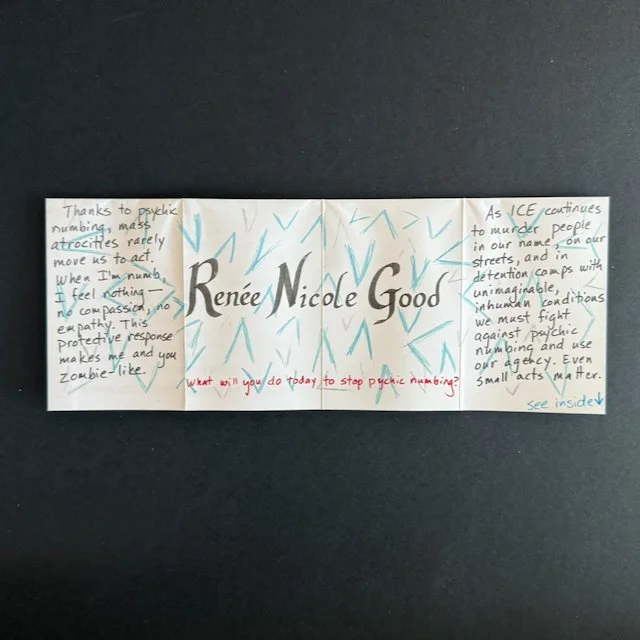 Thanks to psychic
numbing, mass
atrocities rarely
move us to act.
When I'm numb,
I feel nothing —
no compassion, no
empathy. This
protective response
makes me and you
zombie-like.
Renée Nicole Good
What will you do today to stop pychic numbing?
As ICE continues
to murder people
in our name, on our
streets, and in
detention camps with
unimaginable,
inhuman conditions
we must fight
against psychic
numbing and use
our agency. Even
small acts matter.
see inside↓